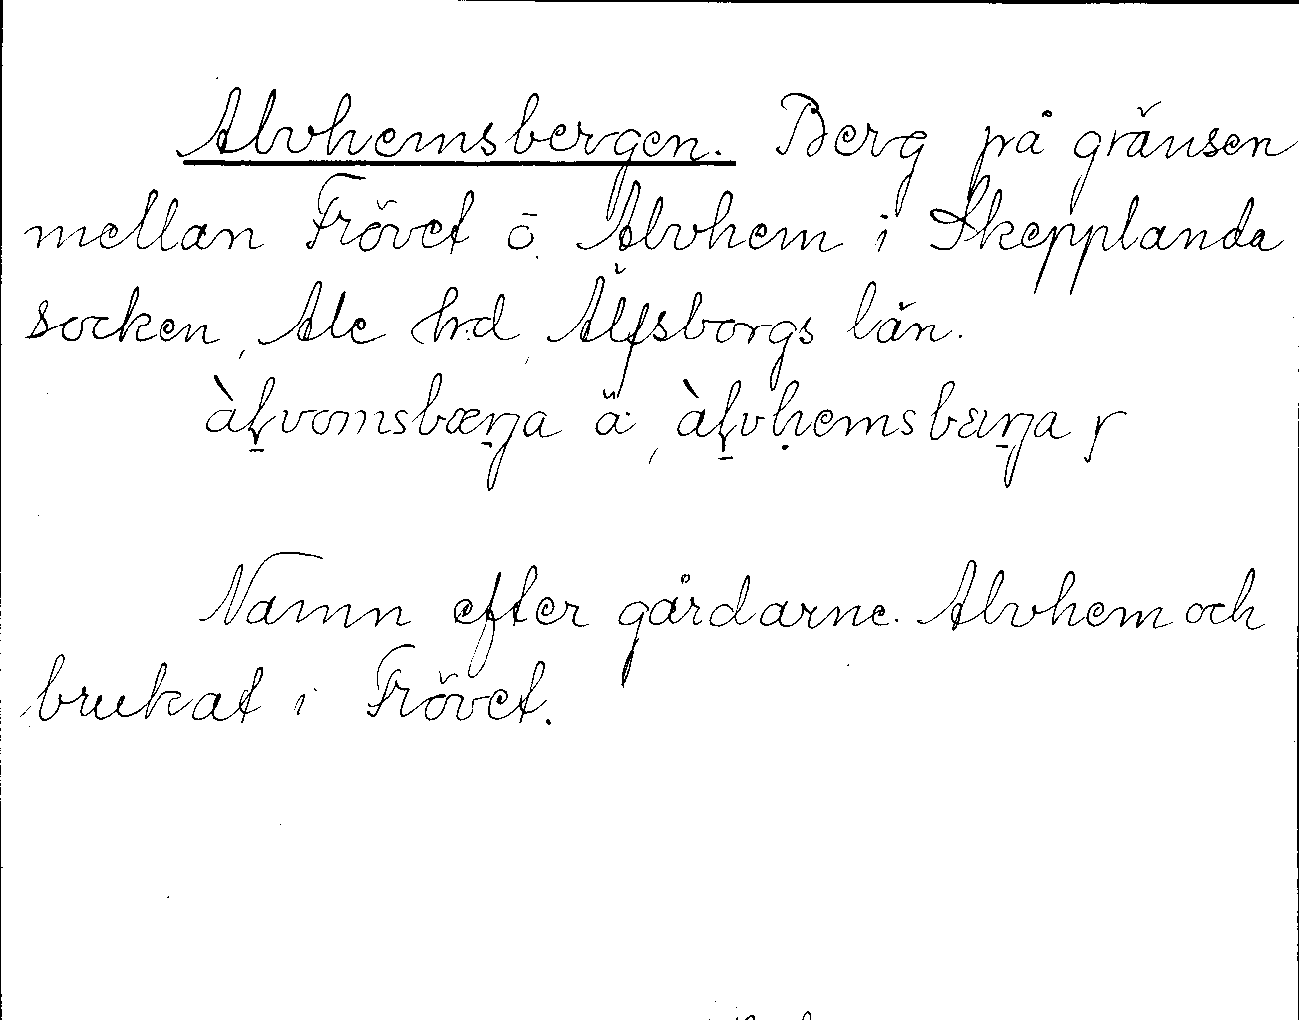 Alvhemsbergen. Berg på gränsen
mellan Frövet o. Alvhem i Skepplanda
socken, Ale hd, Älfsborgs län.
àḻvomsbæṟja ä, àḻvḥemsbɛṟja r
Namn efter gårdarne. Alvhem och
brukat i Frövet.